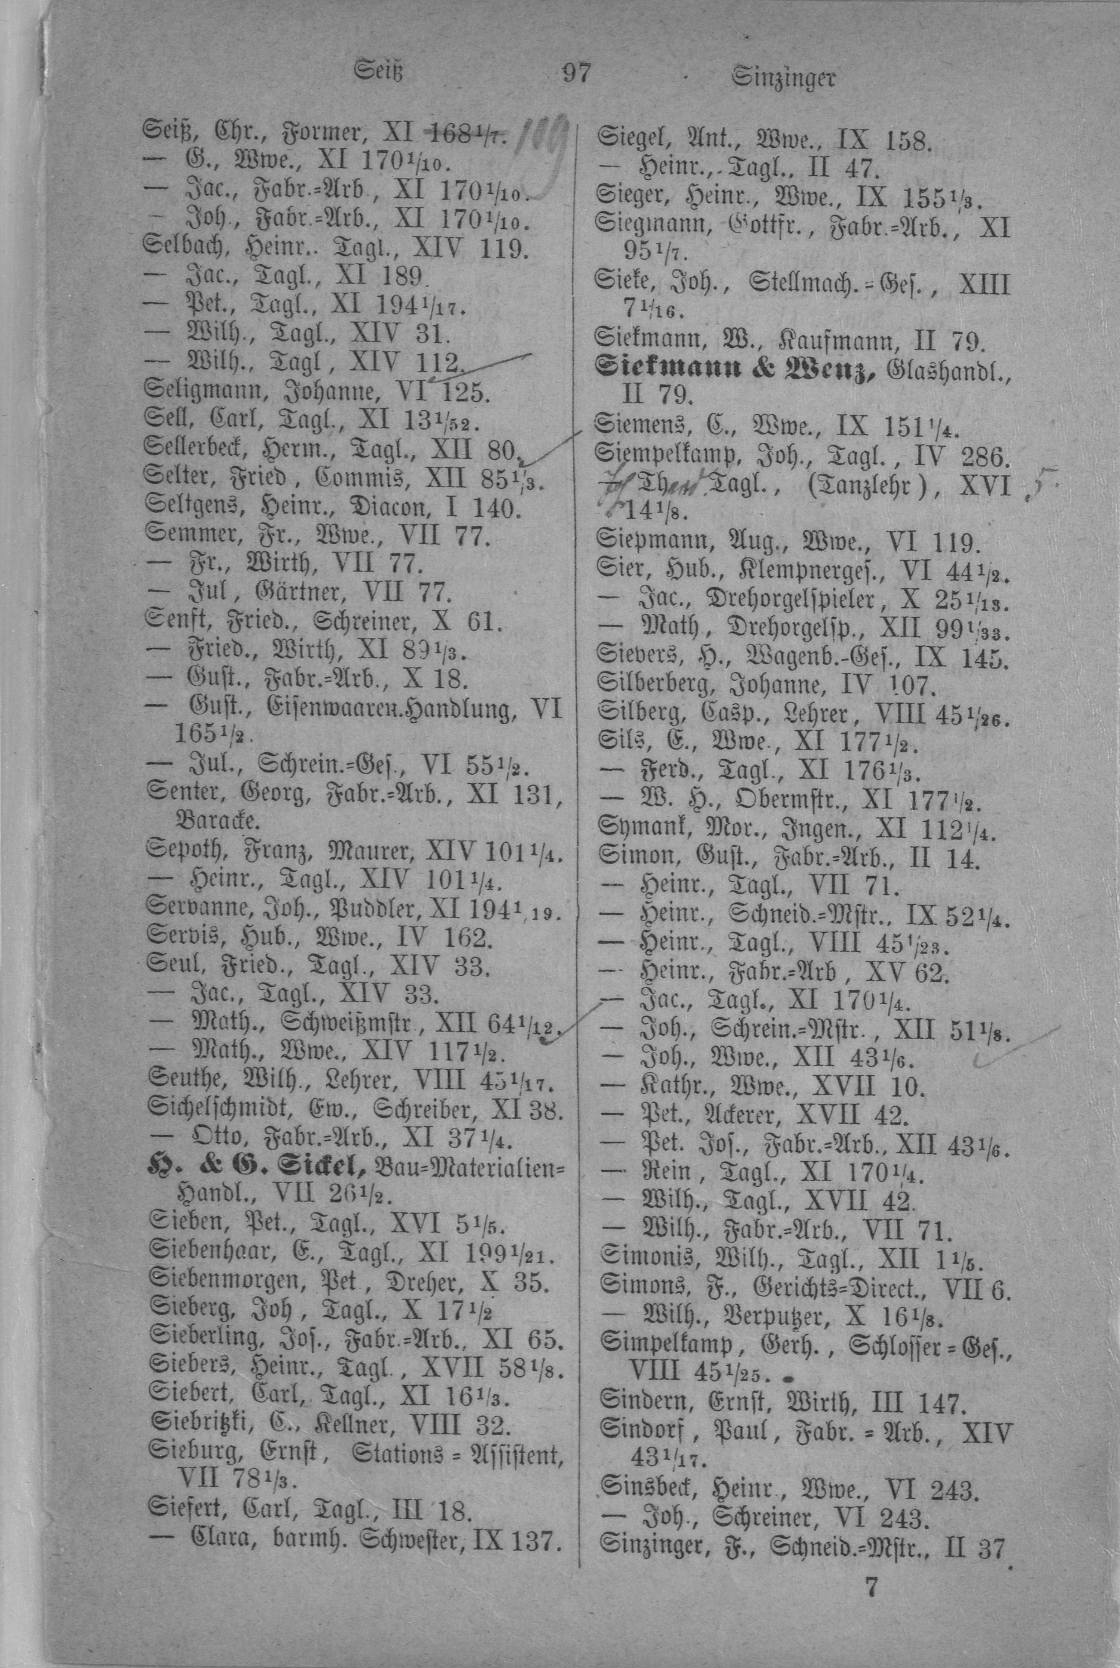 Seiß 97 Sinzinger
Seiß, Chr., Former, XI 168 1/7. 109
— G., Wwe., XI 170 1/10.
— Jac., Fabr.=Arb., XI 170 1/10.
— Joh., Fabr.=Arb., XI 170 1/10.
Selbach, Heinr.. Tagl., XIV 119.
— Jac., Tagl., XI 189.
— Pet., Tagl., XI 194 1/17.
— Wilh., Tagl., XIV 31.
— Wilh., Tagl, XIV 112.
Seligmann, Johanne, VI 125.
Sell, Carl, Tagl., XI 13 1/52.
Sellerbeck, Herm., Tagl., XII 80.
Selter, Fried, Commis, XII 85 1/3.
Seltgens, Heinr., Diacon, I 140.
Semmer, Fr., Wwe., VII 77.
— Fr., Wirth, VII 77.
— Jul, Gärtner, VII 77.
Senft, Fried., Schreiner, X 61.
— Fried., Wirth, XI 89 1/3.
— Gust., Fabr.=Arb., X 18.
— Gust., Eisenwaaren.Handlung, VI
165 1/2.
— Jul., Schrein.=Ges., VI 55 1/2.
Senter, Georg, Fabr.=Arb., XI 131,
Baracke.
Sepoth, Franz, Maurer, XIV 101 1/4.
— Heinr., Tagl., XIV 101 1/4.
Servanne, Joh., Puddler, XI 194 1/19.
Servis, Hub., Wwe., IV 162.
Seul, Fried., Tagl., XIV 33.
— Jac., Tagl., XIV 33.
— Math., Schweißmstr., XII 64 1/12.
— Math., Wwe., XIV 117 1/2.
Seuthe, Wilh., Lehrer, VIII 45 1/17.
Sichelschmidt, Ew., Schreiber, XI 38.
— Otto, Fabr.=Arb., XI 37 1/4.
H. & G. Sickel, Bau=Materialien=
Handl., VII 26 1/2.
Sieben, Pet., Tagl., XVI 5 1/5.
Siebenhaar, E., Tagl., XI 199 1/21.
Siebenmorgen, Pet., Dreher, X 35.
Sieberg, Joh, Tagl., X 17 1/2
Sieberling, Jos., Fabr.=Arb., XI 65.
Siebers, Heinr., Tagl., XVII 58 1/8.
Siebert, Carl, Tagl., XI 16 1/3.
Siebritzki, C., Kellner, VIII 32.
Sieburg, Ernst, Stations=Assistent,
VII 78 1/3.
Siefert, Carl, Tagl., III 18.
— Clara, barmh. Schwester, IX 137.
Siegel, Ant., Wwe., IX 158.
— Heinr., Tagl., II 47.
Sieger, Heinr., Wwe., IX 155 1/3.
Siegmann, Gottfr., Fabr.=Arb., XI
95 1/7.
Sieke, Joh., Stellmach.=Ges., XIII
7 1/16.
Siekmann, W., Kaufmann, II 79.
Siekmann & Wenz, Glashandl.,
II 79.
Siemens, C., Wwe., IX 151 1/4.
Siempelkamp, Joh., Tagl., IV 286.
— Tagl., (Tanzlehr), XVI 5
14 1/8.
Siepmann, Aug., Wwe., VI 119.
Sier, Hub., Klempnerges., VI 44 1/2.
— Jac., Drehorgelspieler, X 25 1/13.
— Math, Drehorgelsp., XII 99 1/33.
Sievers, H., Wagenb.-Ges., IX 145.
Silberberg, Johanne, IV 107.
Silberg, Casp., Lehrer, VIII 45 1/26.
Sils, E., Wwe., XI 177 1/2.
— Ferd., Tagl., XI 176 1/3.
— W. H., Obermstr., XI 177 1/2.
Symank, Mor., Ingen., XI 112 1/4.
Simon, Gust., Fabr.=Arb., II 14.
— Heinr., Tagl., VII 71.
— Heinr., Schneid.=Mstr., IX 52 1/4.
— Heinr., Tagl., VIII 45 1/23.
— Heinr., Fabr.=Arb, XV 62.
— Jac., Tagl., XI 170 1/4.
— Joh., Schrein.=Mstr., XII 51 1/8.
— Joh., Wwe., XII 43 1/6.
— Kathr., Wwe., XVII 10.
— Pet., Ackerer, XVII 42.
— Pet. Jos., Fabr.=Arb., XII 43 1/6.
— Rein, Tagl., XI 170 1/4.
— Wilh., Tagl., XVII 42.
— Wilh., Fabr.=Arb., VII 71.
Simonis, Wilh., Tagl., XII 1 1/5.
Simons, F., Gerichts=Direct., VII 6.
— Wilh., Verputzer, X 16 1/8.
Simpelkamp, Gerh., Schlosser=Ges.,
VIII 45 1/25.
Sindern, Ernst, Wirth, III 147.
Sindorf, Paul, Fabr.=Arb., XIV
43 1/17.
Sinsbeck, Heinr., Wwe., VI 243.
— Joh., Schreiner, VI 243.
Sinzinger, F., Schneid.=Mstr., II 37.
7